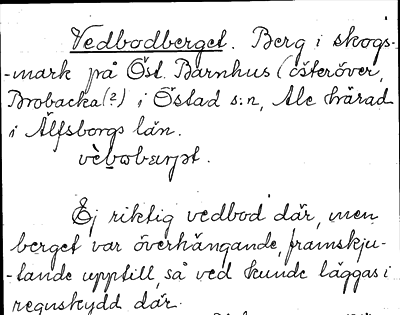 Vedbodberget. Berg i skogs-
-mark på Öst. Barnhus (österöver,
Brobacka(?) i Östad s:n, Ale härad
i Älfsborgs län.
Ej riktig vedbod där, men
berget var överhängande, framskju-
-tande upptill, så ved kunde läggas i
regnskydd där.